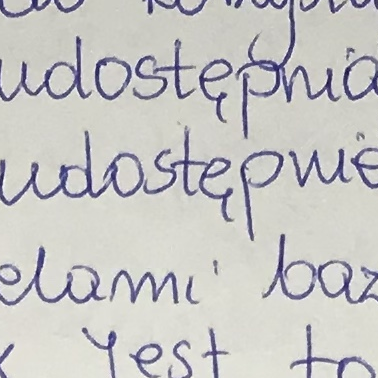 udostępnia
udostępnie
elami baz
Jest to